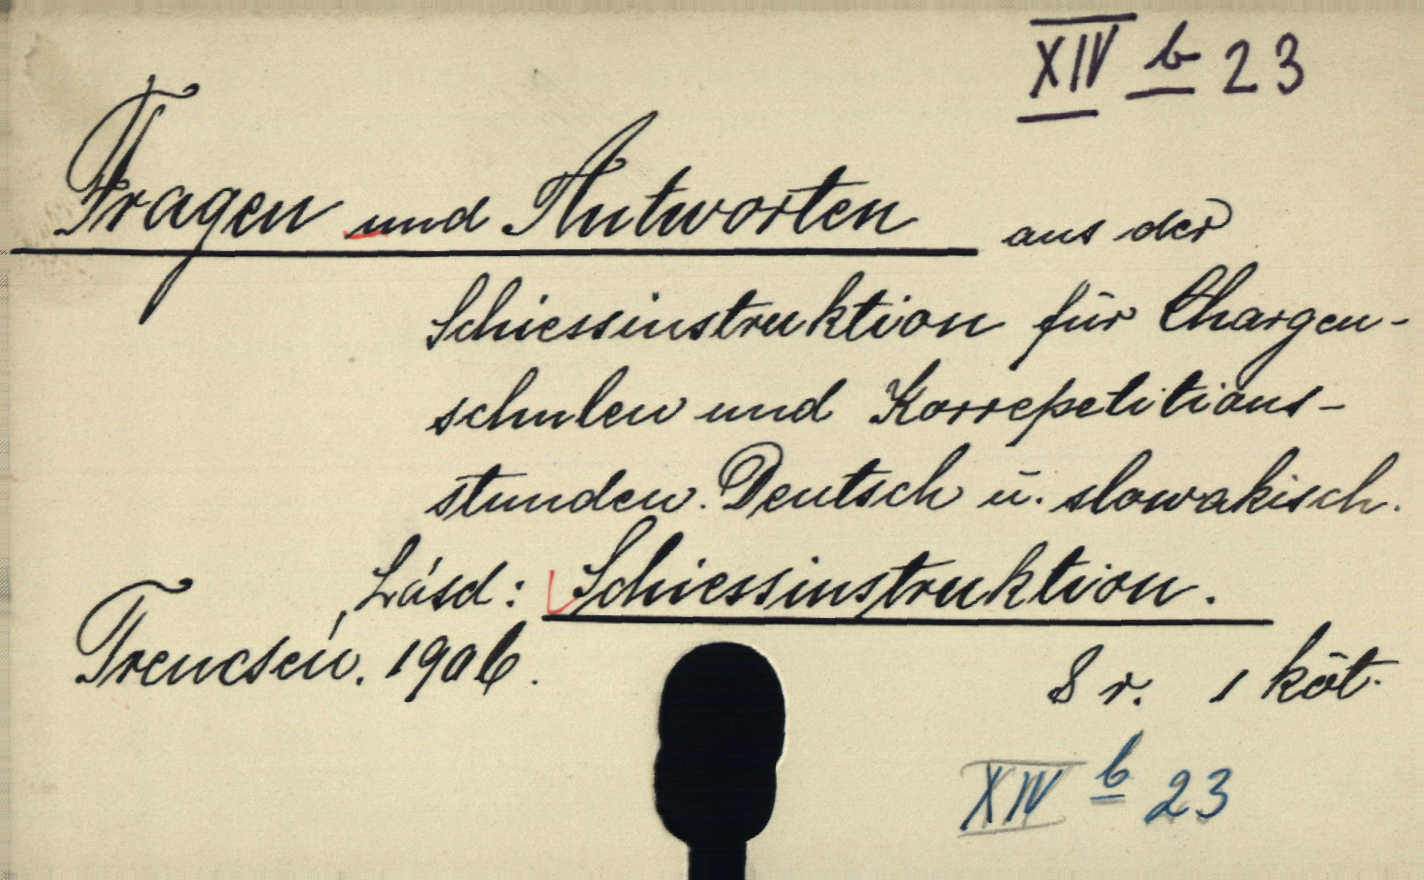 XIV b 23
Fragen und Antworten aus der
Schiessinstruktion für Chargen-
schulen und Korrepetitions-
stunden. Deutsch u. slowakisch.
Lásd: Schiessinstruktion.
Trencsén. 1906.
8 r. 1 köt.
XIV b 23